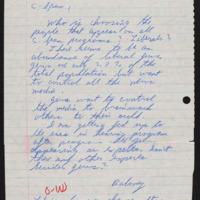 C-Span,
Who is choosing the
people that appear on all
C-Span programs? Liberals?
There seems to be an
abundance of liberal jews.
jews are only 2.0% of the
total population but want
to control all the news
media.
jews want to control
the media to brainwash
others to their mold.
I am getting fed up to
the ears in hearing program
after program
appearing as
other
besides jews?